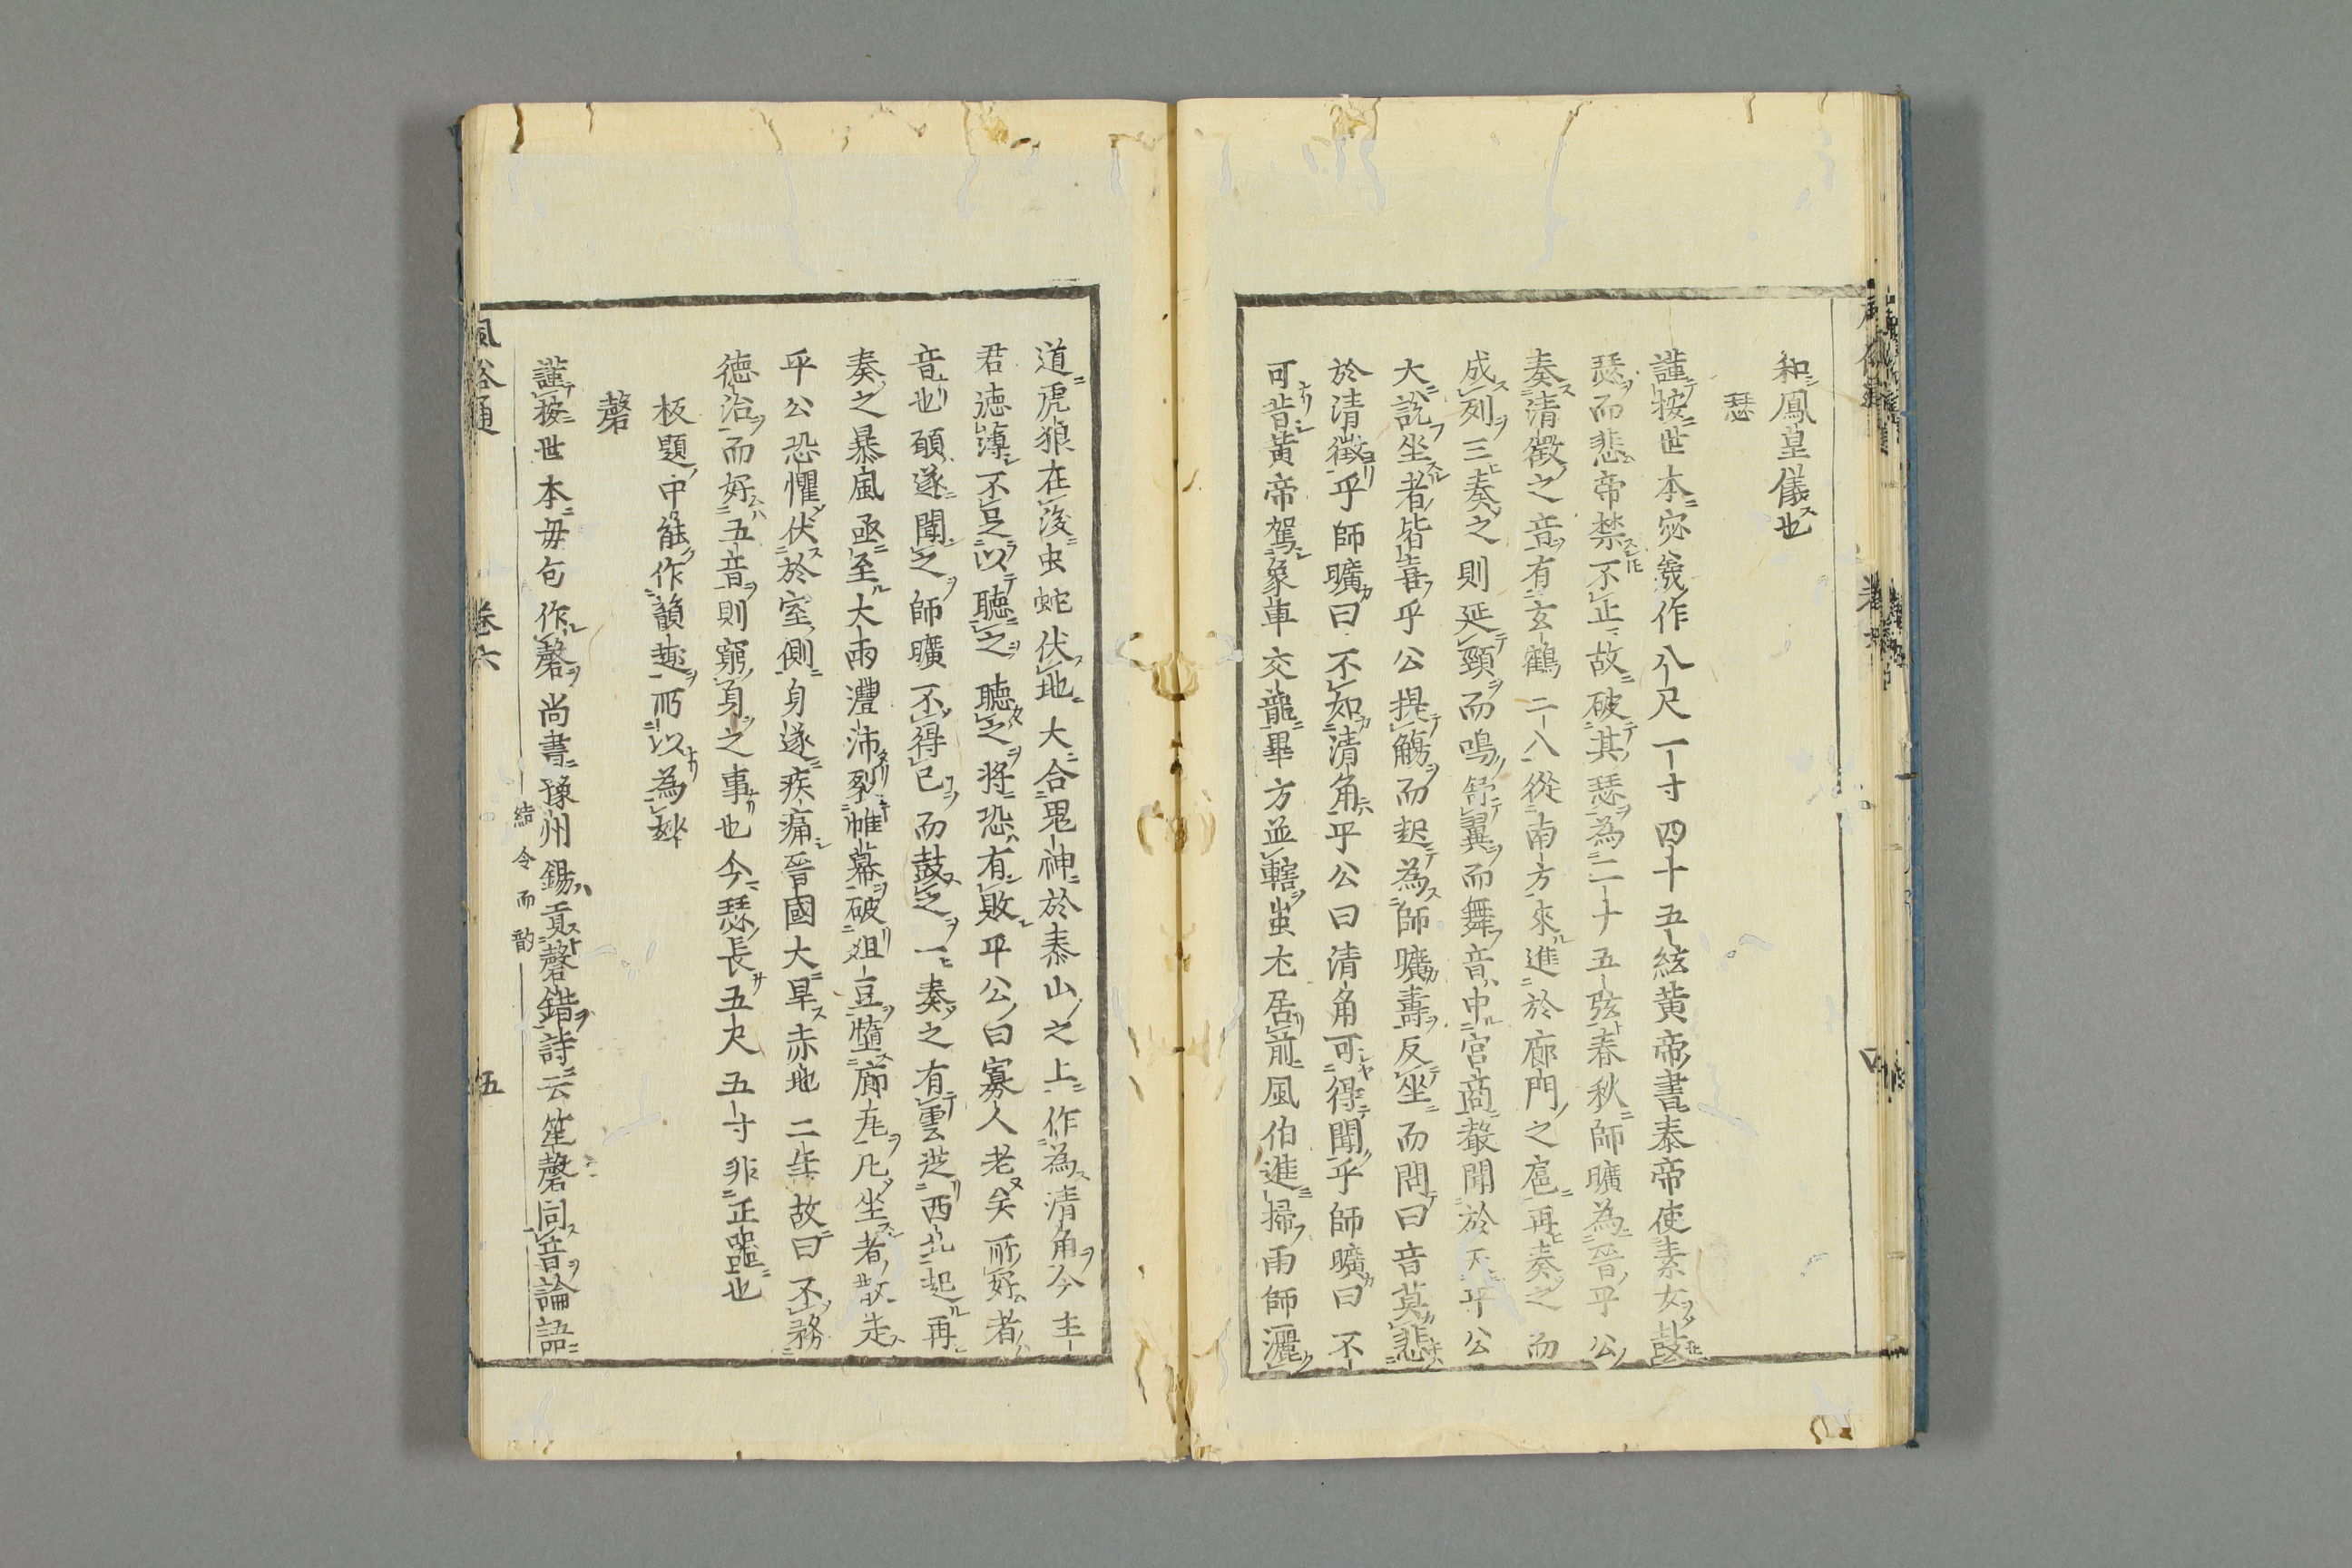 和鳳皇儀也
瑟
謹按世本宓羲作八尺一寸四十五絃黃帝書泰帝使素女鼓
瑟而悲帝禁不正故破其瑟為二十五弦春秋師曠為晉平公
奏清徵之音有玄鶴二八從南方來進於廊門之扈再奏之而
成列三奏之則延頸而鳴舒翼而舞音中宮商聲聞於天平公
大說坐者皆喜平公提觴而起為師曠壽反坐而問曰音莫悲
於清徵乎師曠曰不如清角平公曰清角可得聞乎師曠曰不
可昔黃帝駕象車交龍畢方並轄蚩尤居前風伯進掃雨師灑
道虎狼在後虫蛇伏地大合鬼神於泰山之上作為清角今主
君德薄不足以聽之聽之將恐有敗平公曰寡人老矣所好者
音也願遂聞之師曠不得已而鼓之一奏之有雲從西北起再
奏之暴風亟至大雨澧沛裂帷幕破俎豆墮廊瓦凡坐者散走
平公恐懼伏於室側身遂疾痛晉國大旱赤地三年故曰不務
德治而好五音則窮身之事也今瑟長五尺五寸非正器也
板題中能作韻趣所以為妙
磬
謹按世本毋句作磬尚書豫州錫貢磬錯詩云笙磬同音論語
結令而韵
風俗通 卷六 五